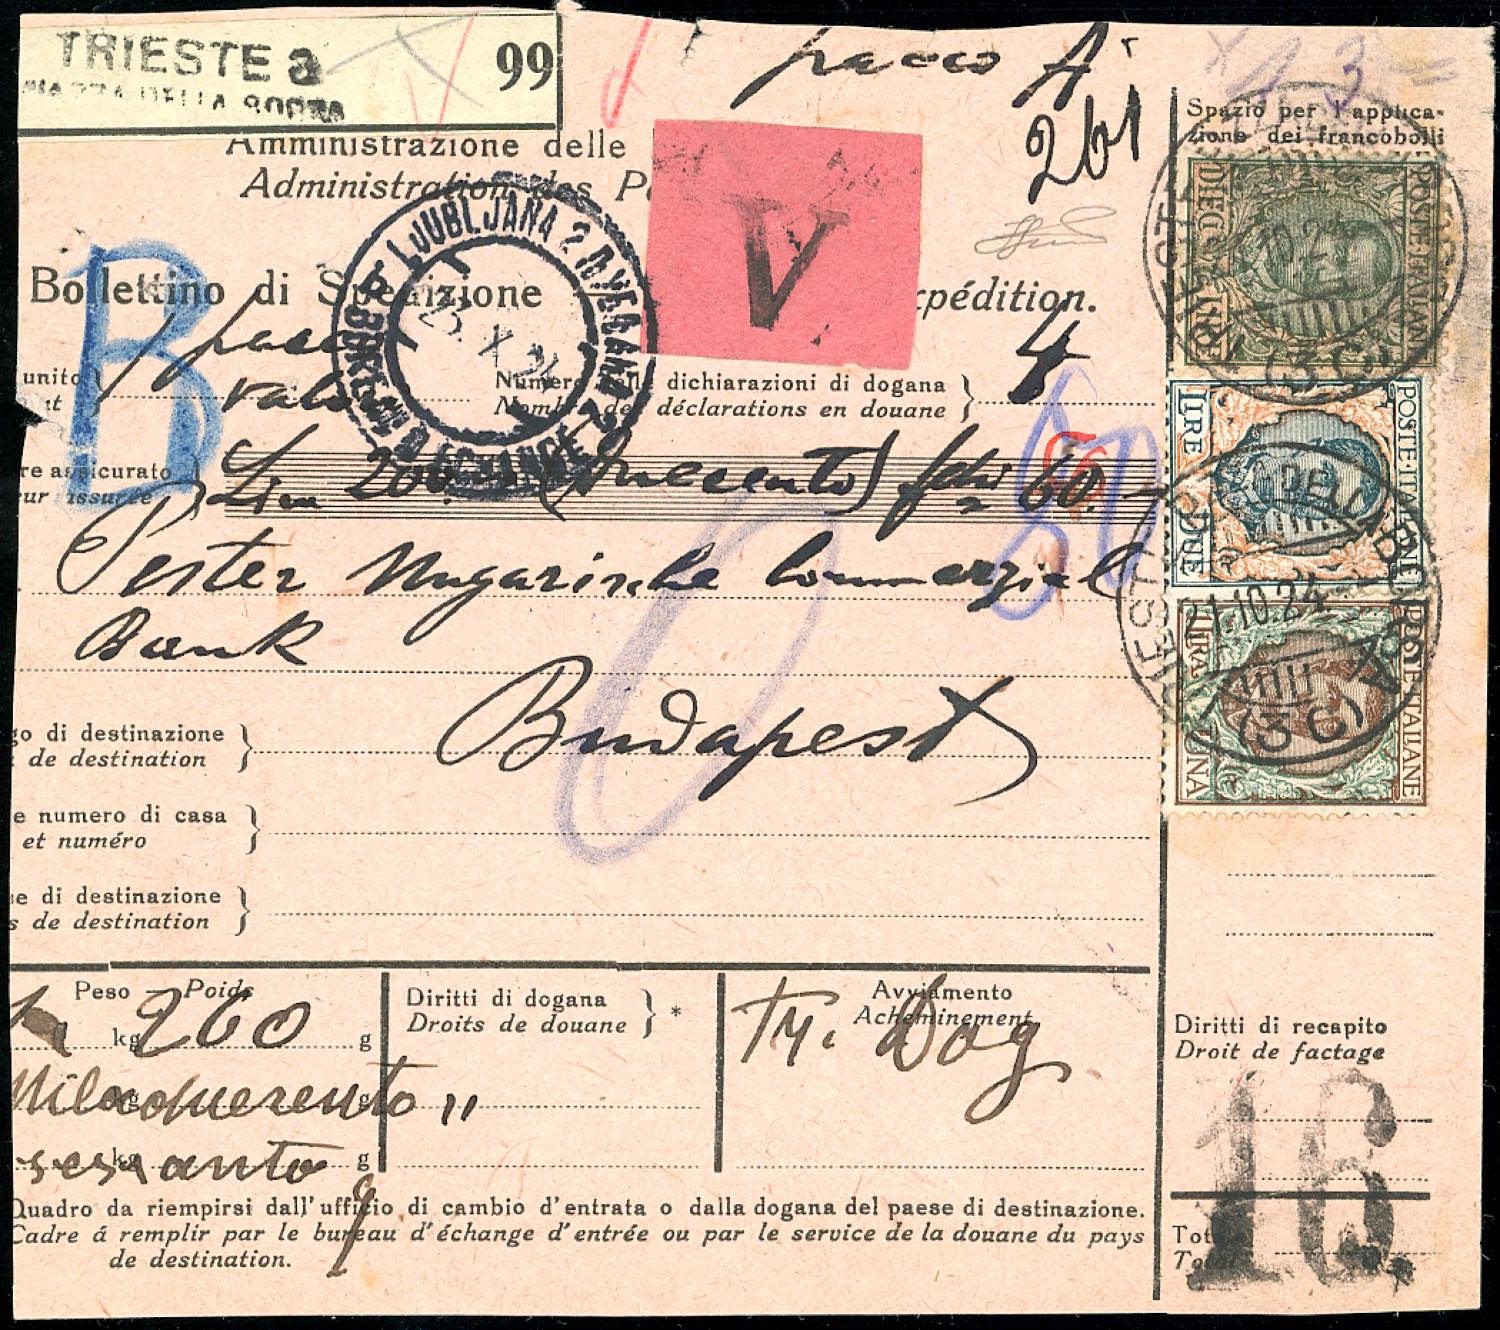 TRIESTE 3
PIAZZA DELLA BORSA
99
pacco A
201
Spazio per l'applica-
zione dei francobolli
Amministrazione delle
Administration des P
V
Bollettino di Spedizione
xpédition.
LJUBLJANA 2
ECHANGE
23 X 24
B
unito
ut
1 pacco
valo
Numero delle dichiarazioni di dogana
Nombre des déclarations en douane
4
re assicurato
eur assurée
Lire 200.- (duecento) 60.-
Pester Ungarische Commerzial
Bank
go di destinazione
de destination
Budapest
e numero di casa
et numéro
se di destinazione
s de destination
POSTE ITALIANE
DIECI LIRE
POSTE·ITALIANE
LIRE DUE
POSTE ITALIANE
LIRA UNA
TRIESTE
DELLA BORSA
21.10.24
(3C)
Peso — Poids
kg 260 g
Diritti di dogana
Droits de douane
*
Avviamento
Acheminement
Dog
Diritti di recapito
Droit de factage
kg g
sessanto
kg g
16
Quadro da riempirsi dall'ufficio di cambio d'entrata o dalla dogana del paese di destinazione.
Cadre á remplir par le bureau d'échange d'entrée ou par le service de la douane du pays
de destination.
Tot
Total